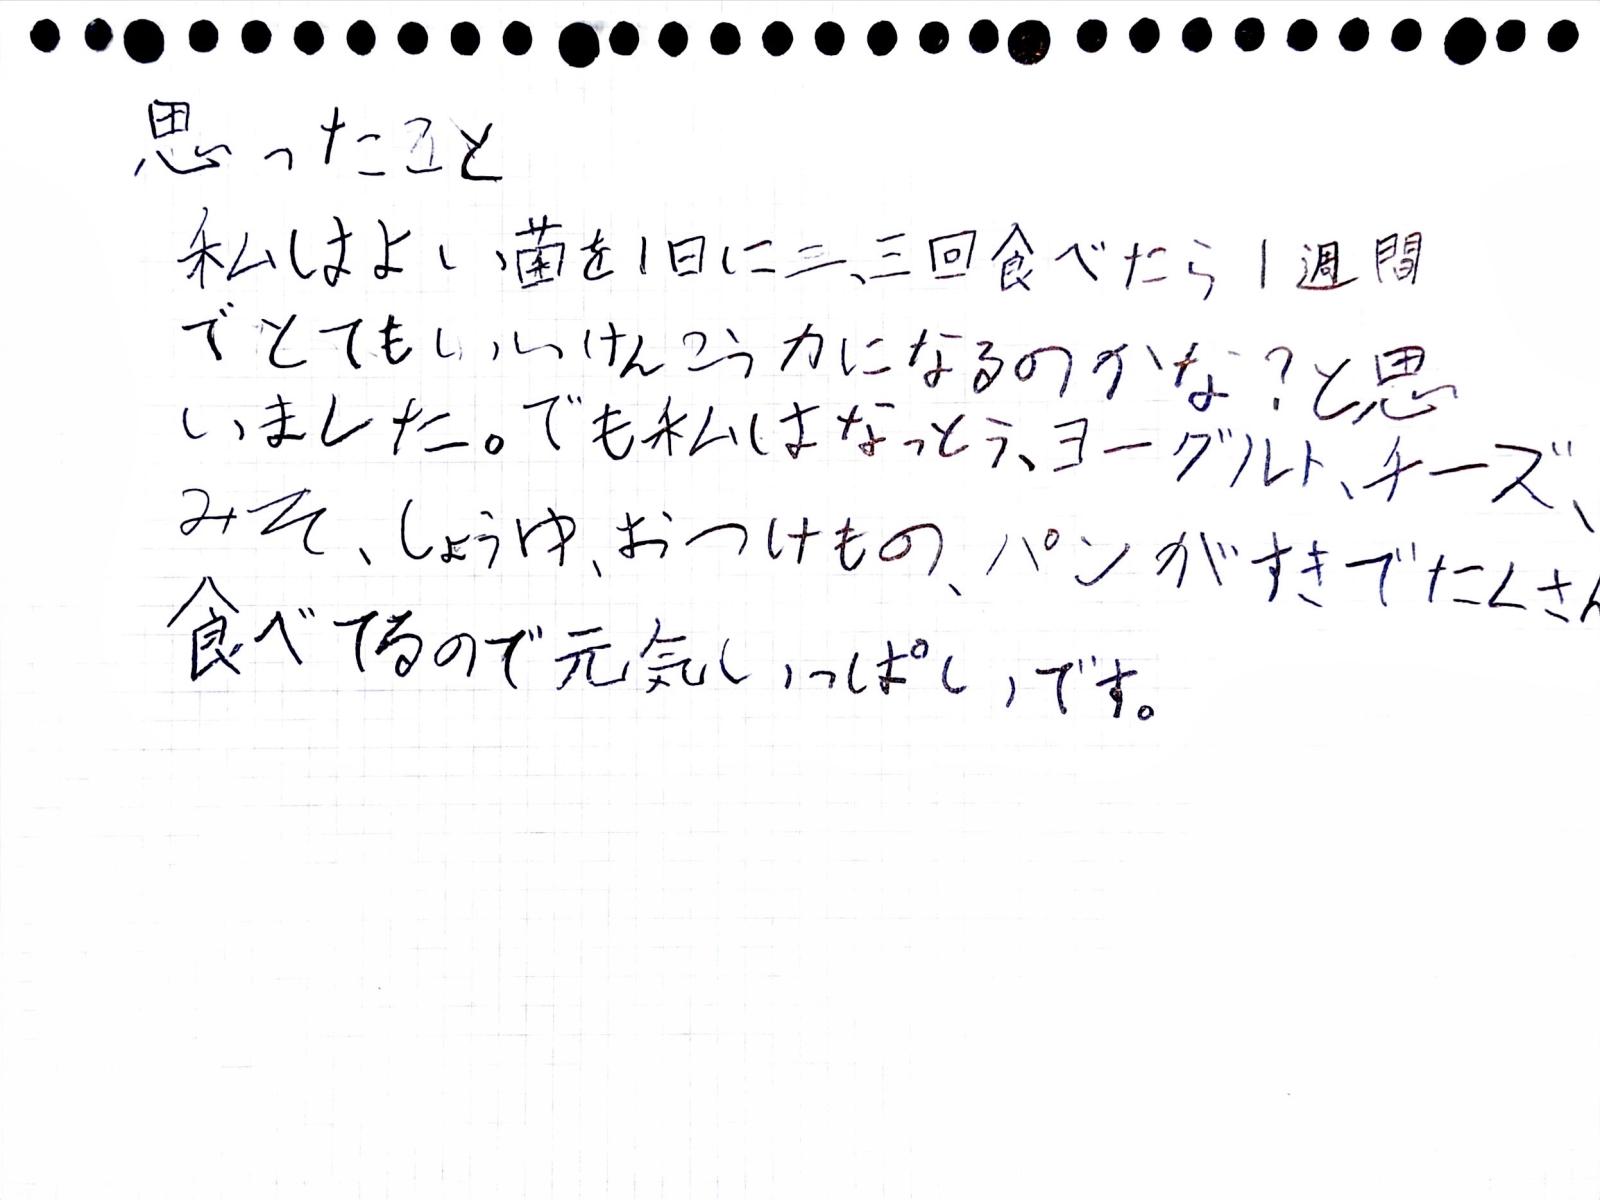 思ったこと
私はよい菌を1日に二、三回食べたら1週間
でとてもいいけんこう力になるのかな?と思
いました。でも私はなっとう、ヨーグルト、チーズ、
みそ、しょうゆ、おつけもの、パンがすきでたくさん
食べてるので元気いっぱいです。